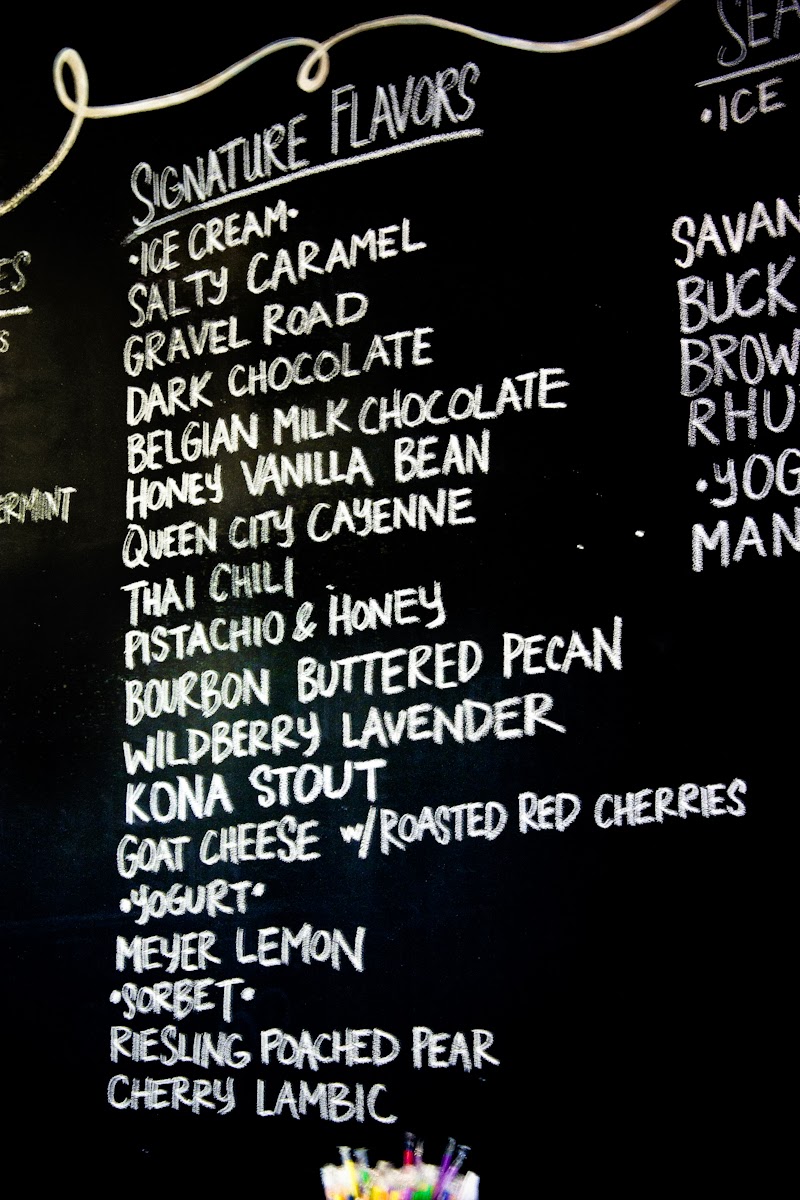 SIGNATURE FLAVORS
•ICE CREAM•
SALTY CARAMEL
GRAVEL ROAD
DARK CHOCOLATE
BELGIAN MILK CHOCOLATE
HONEY VANILLA BEAN
QUEEN CITY CAYENNE
THAI CHILI
PISTACHIO & HONEY
BOURBON BUTTERED PECAN
WILDBERRY LAVENDER
KONA STOUT
GOAT CHEESE w/ROASTED RED CHERRIES
•YOGURT•
MEYER LEMON
•SORBET•
RIESLING POACHED PEAR
CHERRY LAMBIC
•ICE